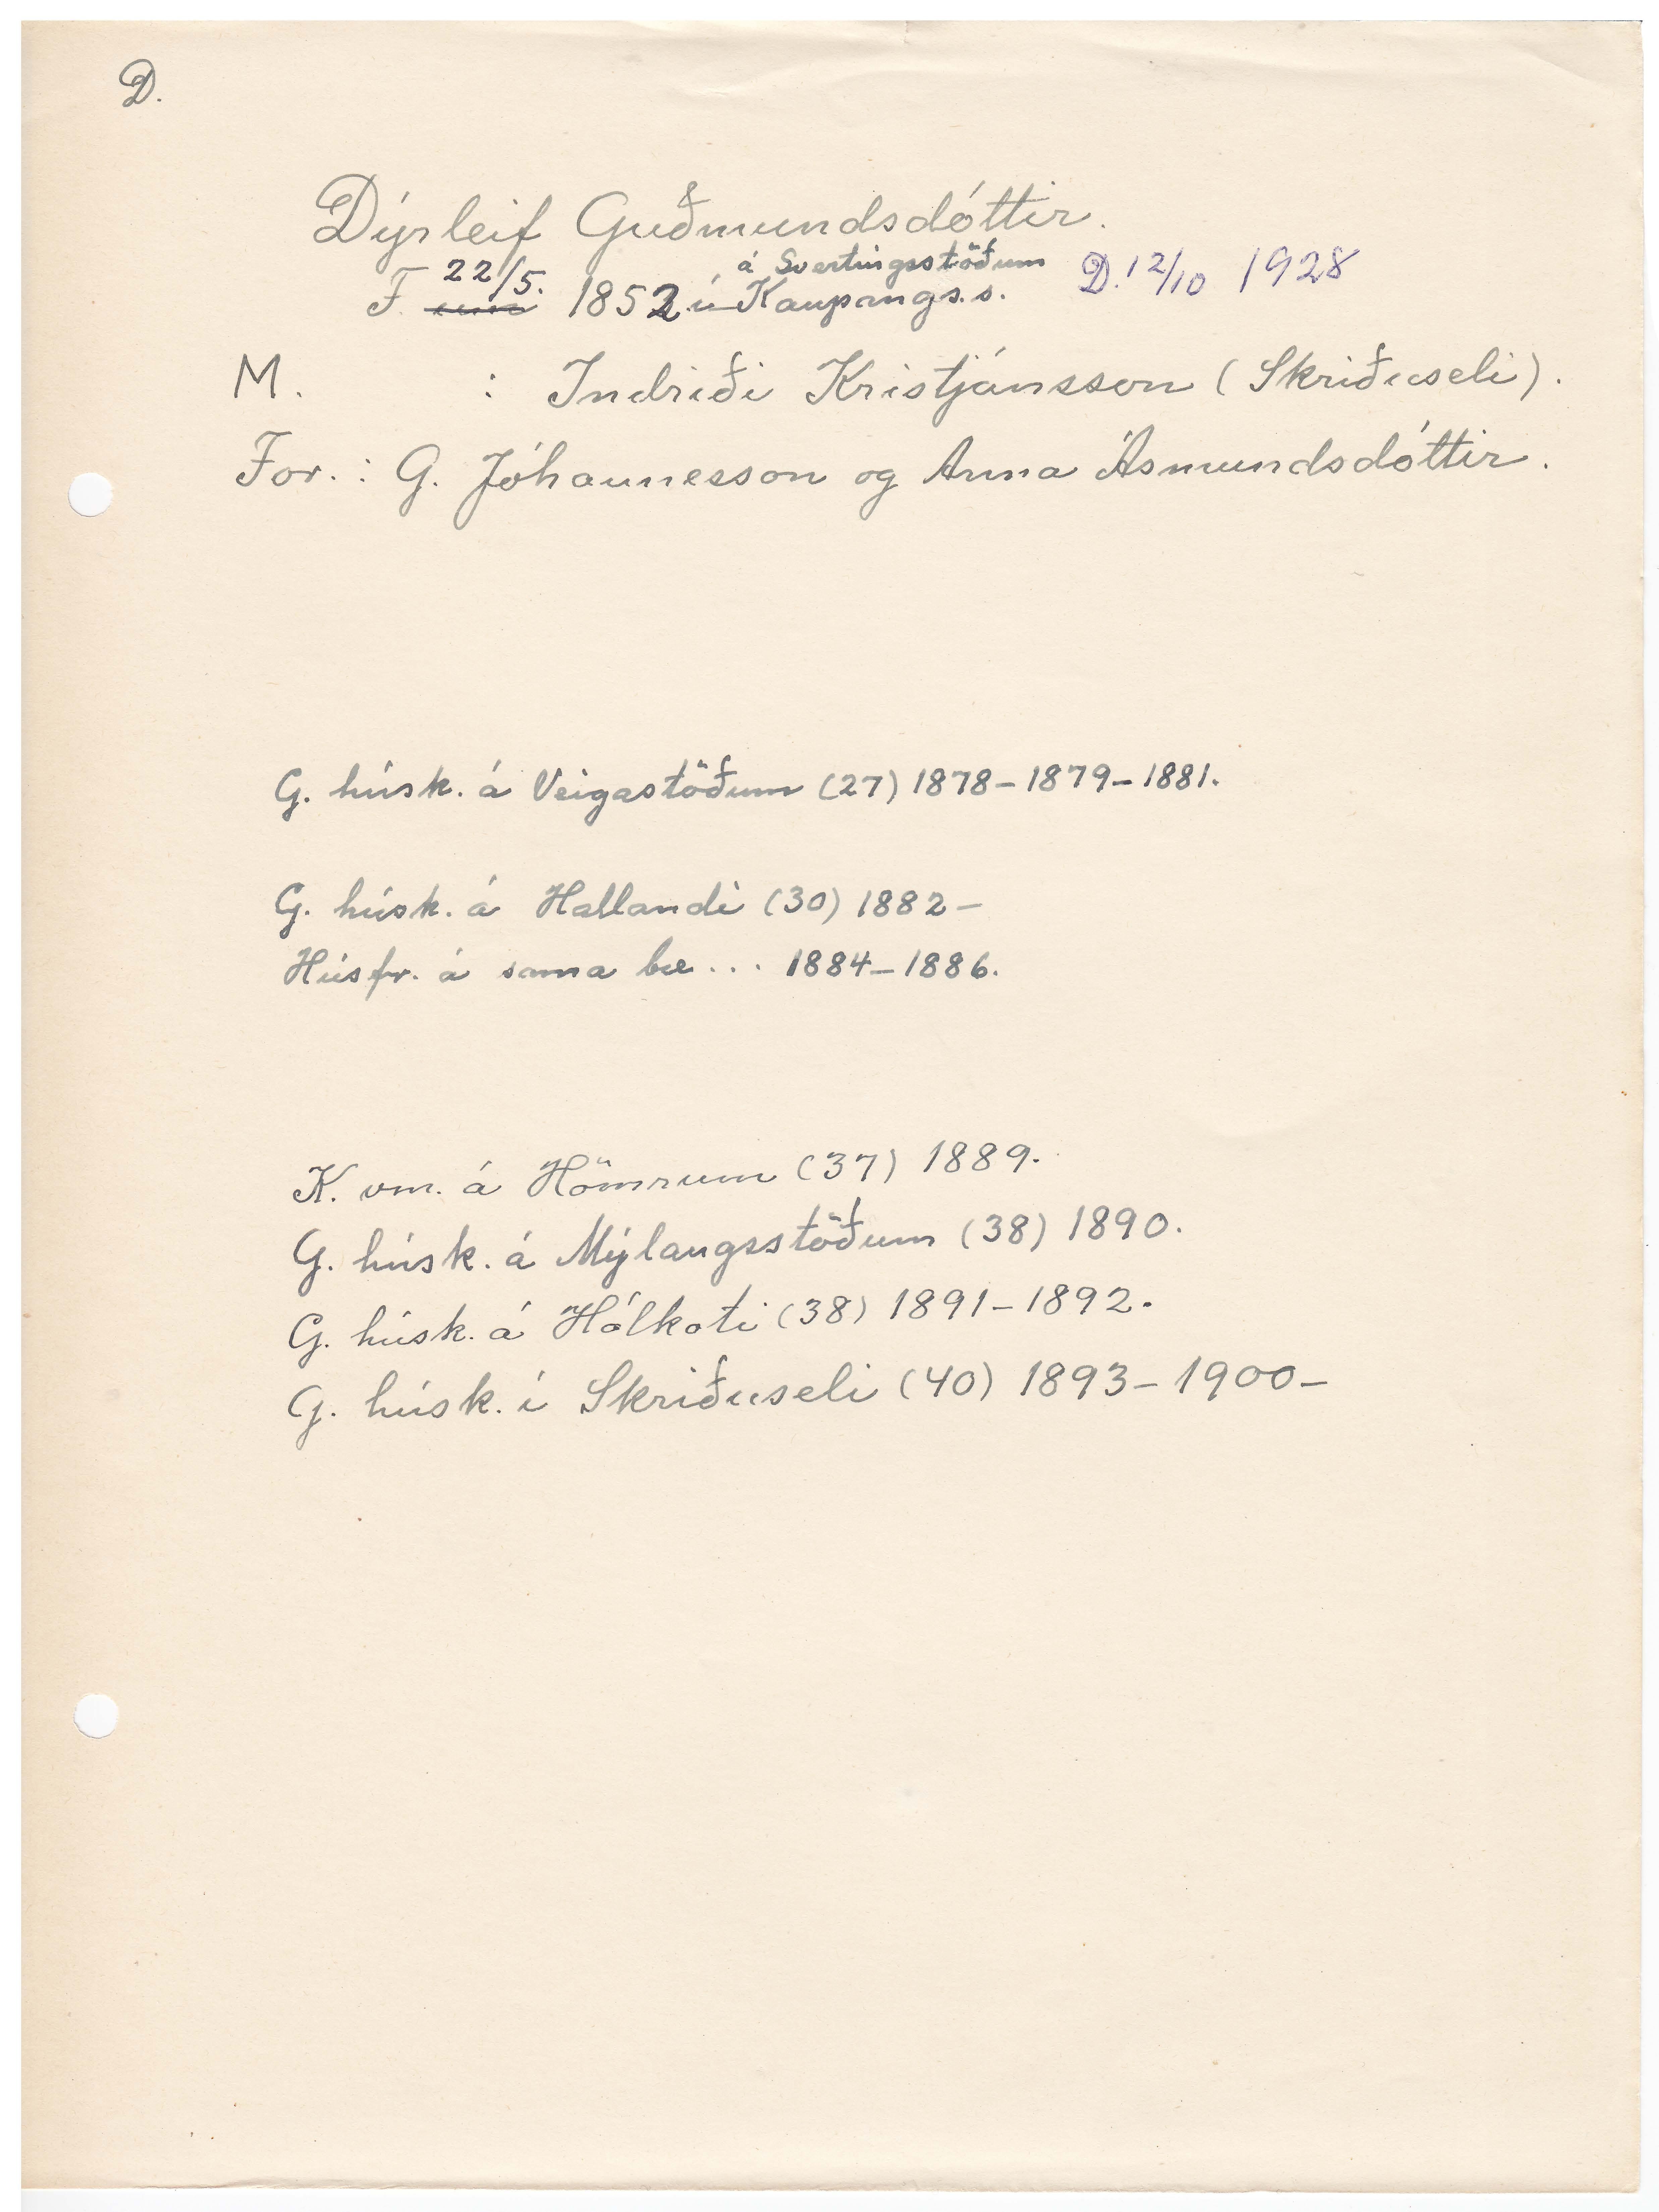 D.
Dýrleif Guðmundsdóttir.
22/5. á Svertingsstöðum
F. 1852 í Kaupangs.s. D. 12/10 1928
M. : Indriði Kristjánsson (Skriðuseli).
For. : G. Jóhannesson og Anna Ásmundsdóttir.
G. húsk. á Veigastöðum (27) 1878-1879-1881.
G. húsk. á Hallandi (30) 1882-
Húsfr. á sama bæ ... 1884-1886.
K. vm. á Hömrum (37) 1889.
G. húsk. á Mýlaugsstöðum (38) 1890.
G. húsk. á Hólkoti (38) 1891-1892.
G. húsk. í Skriðuseli (40) 1893-1900-